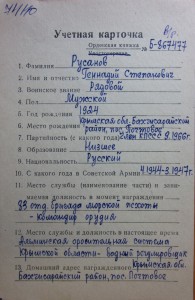 Учетная карточка
Орденская книжка
№ Б-867477
1. Фамилия Русаков
2. Имя и отчество Геннадий Степанович
3. Воинское звание Рядовой
4. Пол Мужской
5. Год рождения 1924
6. Место рождения Крымская обл. Бахчисарайский
район, пос. Почтовое
7. Партийность (с какого
8. Образование Низшее
9. Национальность Русский
10. С какого года в Советской Армии
11. Место службы (наименование части) и
должность в момент награждения
83 отд. бригада морской пехоты
- командир орудия
12. Место службы и должность в настоящее время
Альминская оросительная система
Крымской области -
13. Домашний адрес награжденного Крымская обл.
Бахчисарайский район, пос. Почтовое